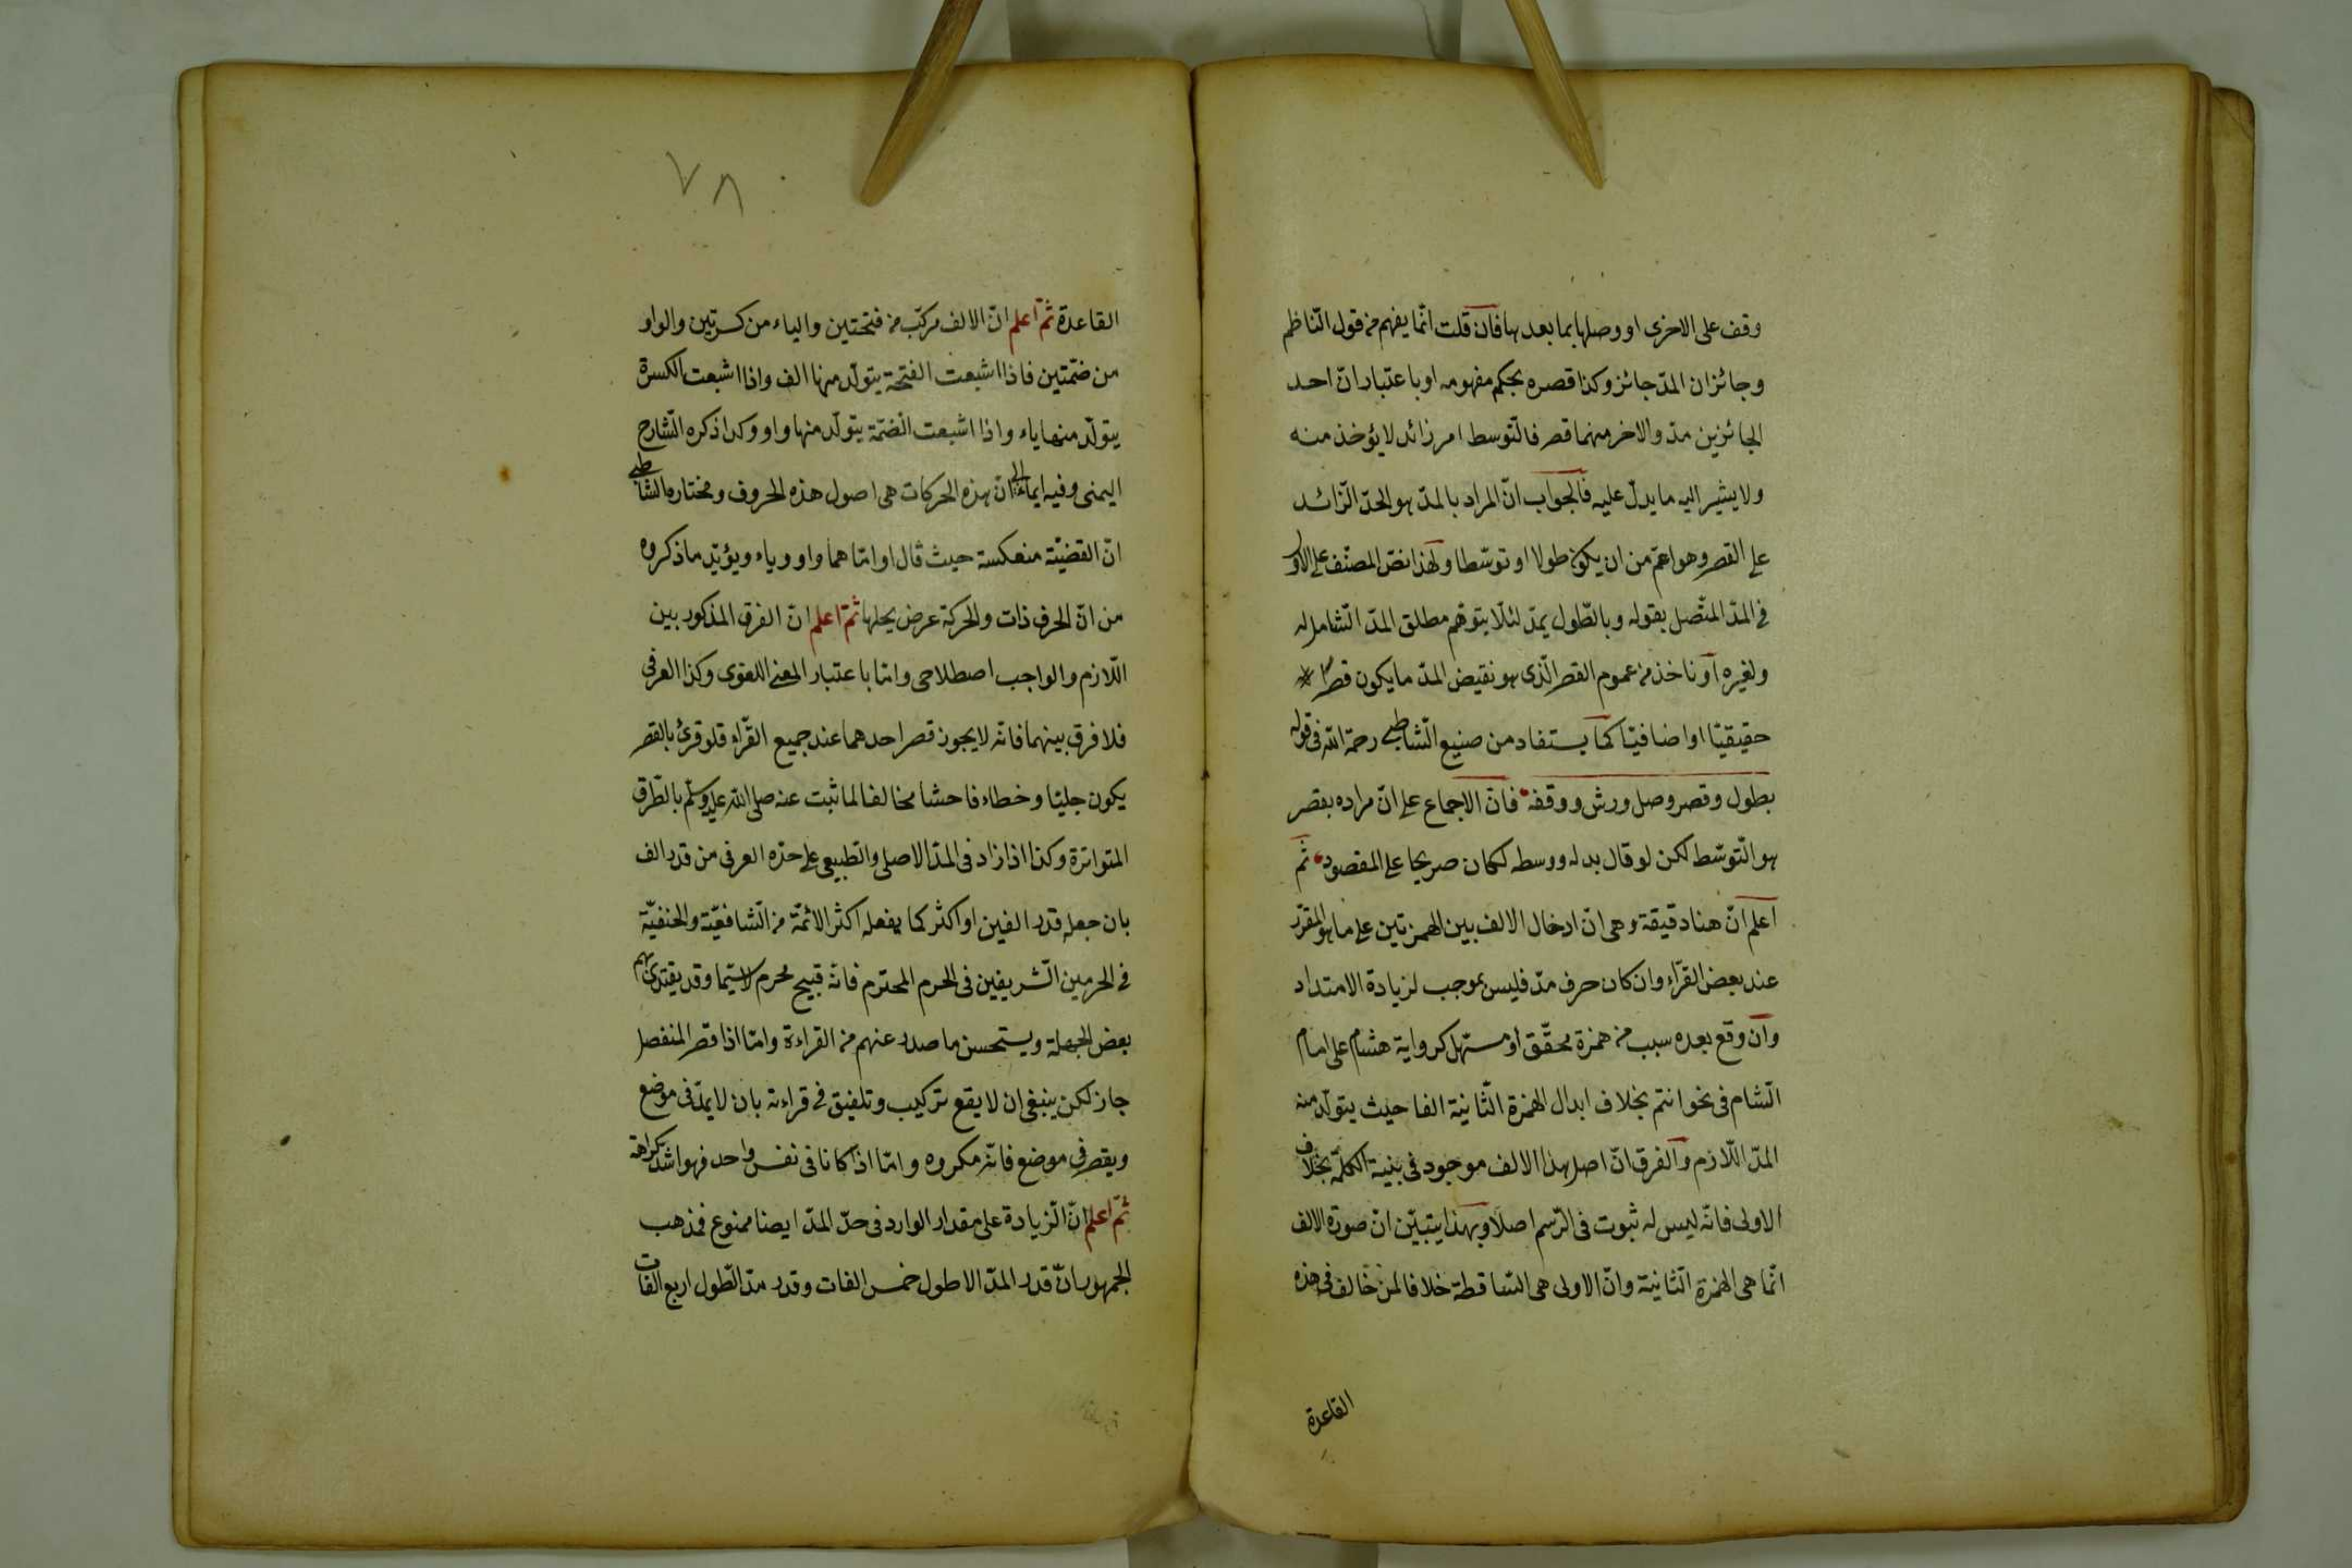 وقف على الاخرى او وصلها بما بعدها فان قلت انّما يفهم من قول النّاظم
وجائز ان المدّ جائز وكذا قصره بحكم مفهومه او باعتبار انّ احد
الجائزين مدّ والاخر منهما قصر فالتّوسط امر زائد لا يؤخذ منه
ولا يشير اليه ما يدلّ عليه فالجواب انّ المراد بالمدّ هو الحدّ الزّائد
على القصر وهو اعمّ من ان يكون طولا او توسّطا ولهذا نصّ المصنّف على الاول
في المدّ المتّصل بقوله وبالطّول يمدّ لئلّا يتوهّم مطلق المدّ الشّامل له
ولغيره او ناخذ من عموم القصر الّذى هو نقيض المدّ ما يكون قصرا
حقيقيّا او اضافيّا كما يستفاد من صنيع الشّاطبى رحمة الله فى قوله
بطول وقصر وصل ورش ووقفه فانّ الاجماع على انّ مراده بقصر
هو التّوسّط لكن لو قال بدله ووسطه لكان صريحا على المقصود ثم
اعلم انّ هنا دقيقة وهى انّ ادخال الالف بين الهمزتين على ما هو المقرّر
عند بعض القرّاء وان كان حرف مدّ فليس بموجب لزيادة الامتداد
وان وقع بعده سبب من همزة محقّق او مسهّل كرواية هشام على امام
الشّام فى نحو انتم بخلاف ابدال الهمزة الثّانية الفا حيث يتولّد منه
المدّ اللّازم والفرق انّ اصل هذا الالف موجود فى بنية الكلمة بخلاف
الاولى فانّه ليس له ثبوت فى الرّسم اصلا وبهذا يتبيّن انّ صورة الالف
انّما هى الهمزة الثّانية وانّ الاولى هى السّاقطة خلافا لمن خالف فى هذه
القاعدة
٧٨
القاعدة ثمّ اعلم انّ الالف مركّب من فتحتين والياء من كسرتين والواو
من ضمّتين فاذا اشبعت الفتحة يتولّد منها الف واذا اشبعت الكسرة
يتولّد منها ياء واذا اشبعت الضمّة يتولّد منها واو وكذا ذكره الشّارح
اليمنى وفيه ايماء الى انّ هذه الحركات هى اصول هذه الحروف ومختاره الشاطبى
انّ القضيّة منعكسة حيث قال او امّا هما واو وياء ويؤيّد ما ذكروه
من انّ الحرف ذات والحركة عرض يحلها ثمّ اعلم انّ الفرق المذكور بين
اللّازم والواجب اصطلاحى وامّا باعتبار المعنى اللغوى وكذا العرفى
فلا فرق بينهما فانّه لا يجوز قصر احدهما عند جميع القرّاء فلو قرئ بالقصر
يكون جليّا وخطاء فاحشا مخالفا لما ثبت عنه صلى الله عليه وسلّم بالطّرق
المتواترة وكذا اذا زاد فى المدّ الاصلى والطّبيعى على حدّه العرفى من قدر الف
بان جعله قدر الفين او اكثر كما يفعله اكثر الائمّة من الشّافعيّة والحنفيّة
في الحرمين الشّريفين فى الحرم المحترم فانّه قبيح محرم لاسيّما وقد يقتدى بهم
بعض الجهلة ويستحسن ما صدر عنهم من القراءة وامّا اذا قصر المنفصل
جاز لكن ينبغى ان لا يقع تركيب وتلفيق فى قراءته بان لا يمدّ فى موضع
ويقصر فى موضع فانّه مكروه وامّا اذا كانا فى نفس واحد فهو اشدّ كراهة
ثمّ اعلم انّ الزّيادة على مقدار الوارد فى حدّ المدّ ايضا ممنوع فمذهب
الجمهور انّ قدر المدّ الاطول خمس الفات وقدر مدّ الطّول اربع الفات